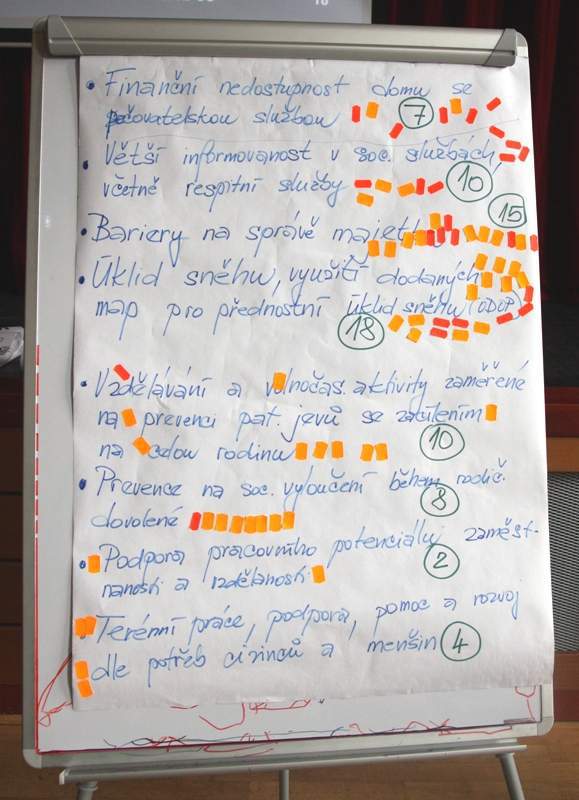 • Finanční nedostupnost domu se
pečovatelskou službou 7
• Větší informovanost v soc. službách,
včetně respitní služby 10
15
• Bariery na správě majetku
• Úklid sněhu, využití dodaných
map pro přednostní úklid sněhu (ODOP)
18
• Vzdělávání a volnočas. aktivity zaměřené
na prevenci pat. jevů se zacílením
na celou rodinu 10
• Prevence na soc. vyloučení během rodič.
dovolené 8
• Podpora pracovního potenciálu, zaměst-
nanosti a vzdělanosti 2
• Terénní práce, podpora, pomoc a rozvoj
dle potřeb cizinců a menšin 4